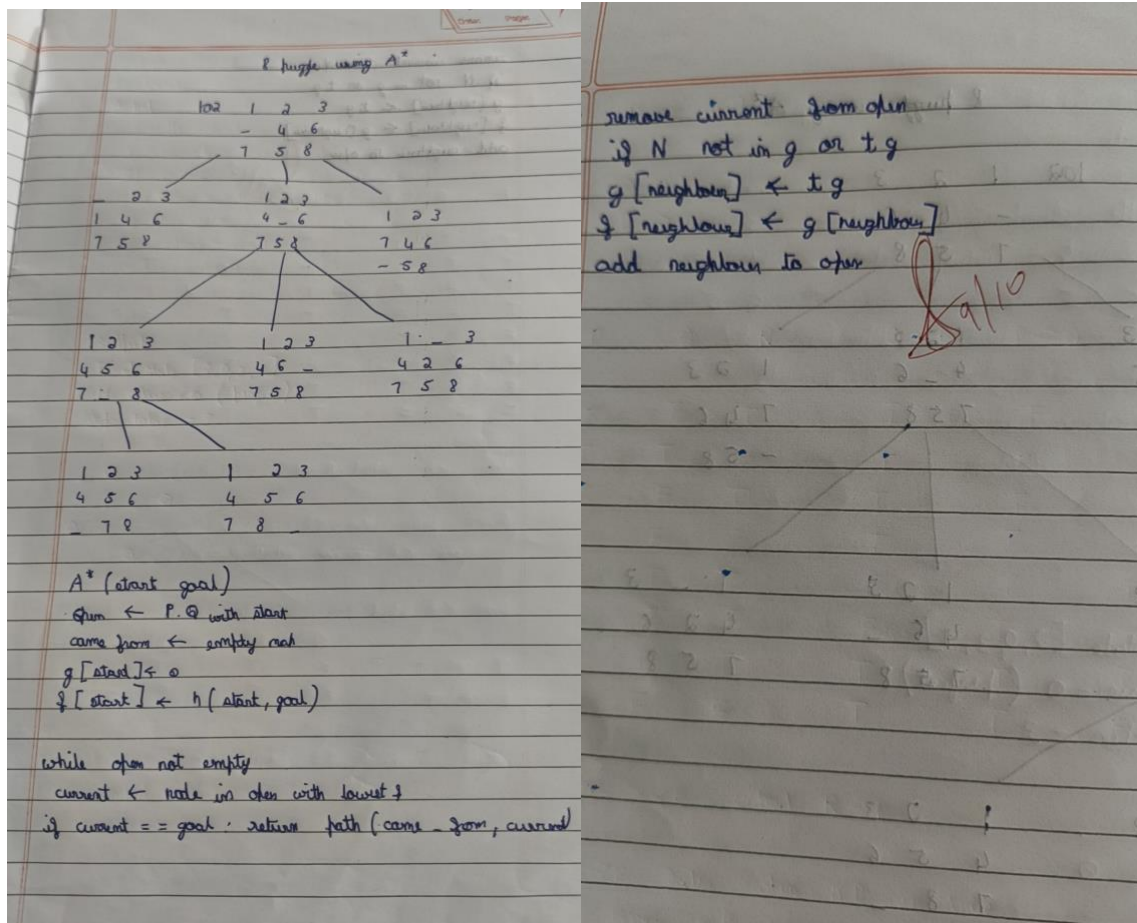 8 puzzle using A*
102 1 2 3
- 4 6
7 5 8
_ 2 3
1 4 6
7 5 8
1 2 3
4 _ 6
7 5 8
1 2 3
7 4 6
- 5 8
1 2 3
4 5 6
7 _ 8
1 2 3
4 6 _
7 5 8
1 _ 3
4 2 6
7 5 8
1 2 3
4 5 6
_ 7 8
1 2 3
4 5 6
7 8 _
A* (start goal)
open ← P.Q with start
came from ← empty map
g [start] ← 0
f [start] ← h (start, goal)
while open not empty
current ← node in open with lowest f
if current == goal . return path (came _ from, current)
remove current from open
if N not in g or tg
g [neighbour] ← tg
f [neighbour] ← g [neighbour]
add neighbour to open
9/10